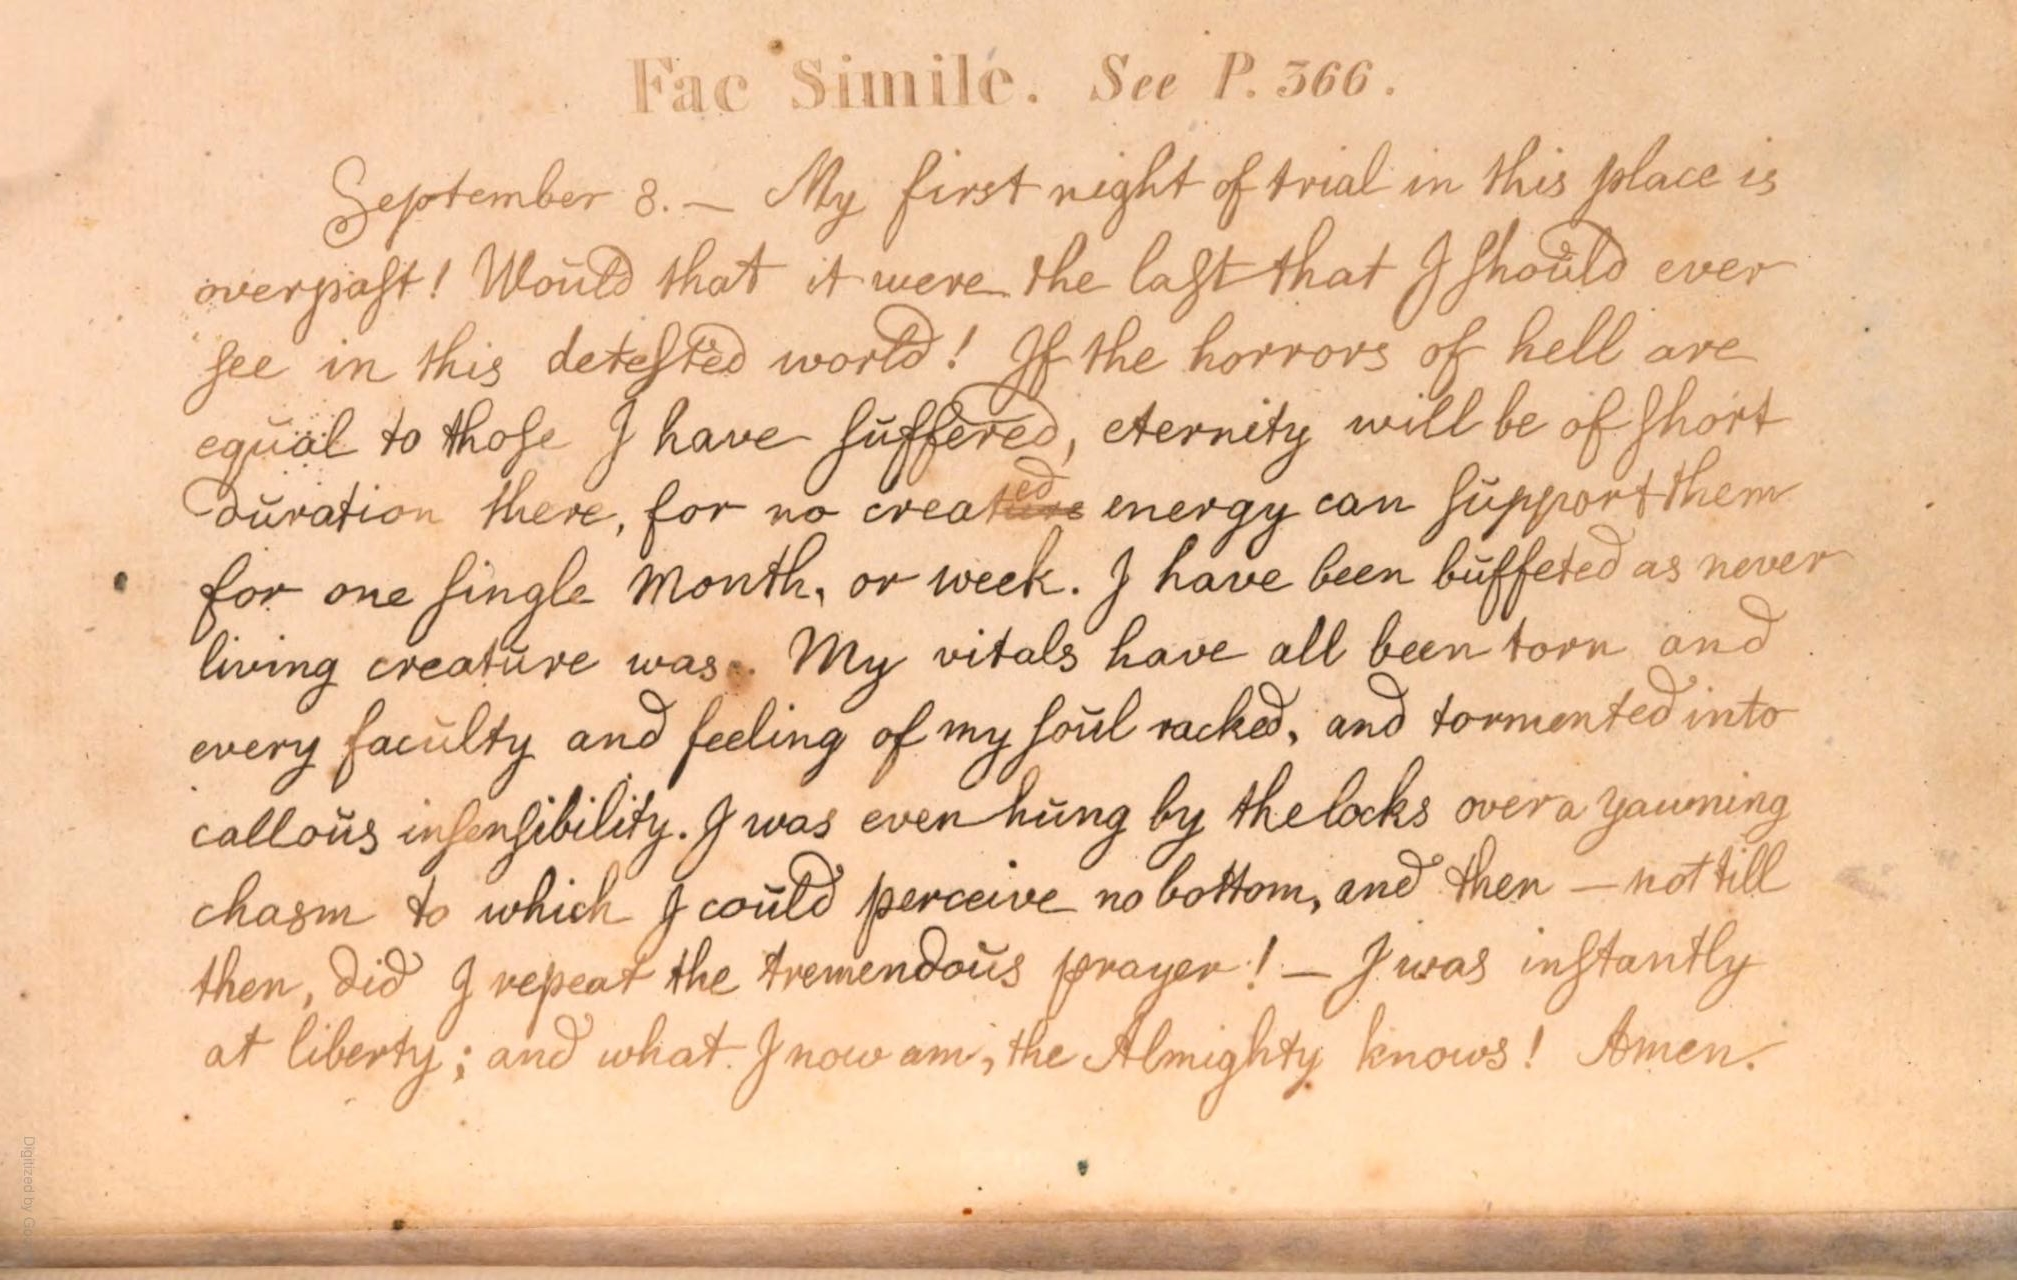 Fac Simile. See P. 366.
September 8. — My first night of trial in this place is
overpast! Would that it were the last that I should ever
see in this detested world! If the horrors of hell are
equal to those I have suffered, eternity will be of short
duration there, for no created energy can support them
for one single month, or week. I have been buffeted as never
living creature was. My vitals have all been torn and
every faculty and feeling of my soul racked, and tormented into
callous insensibility. I was even hung by the locks over a yawning
chasm to which I could perceive no bottom, and then — not till
then, did I repeat the tremendous prayer! — I was instantly
at liberty; and what I now am, the Almighty knows! Amen.
Digitized by